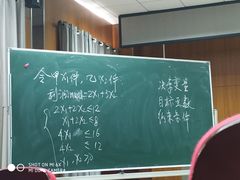 令甲x₁件，乙x₂件
利润max=2x₁+3x₂
2x₁+2x₂≤12
x₁+2x₂≤8
4x₁ ≤16
4x₂ ≤12
x₁,x₂≥0
决策变量
目标函数
约束条件
SHOT ON MI 6X
MI DUAL CAMERA